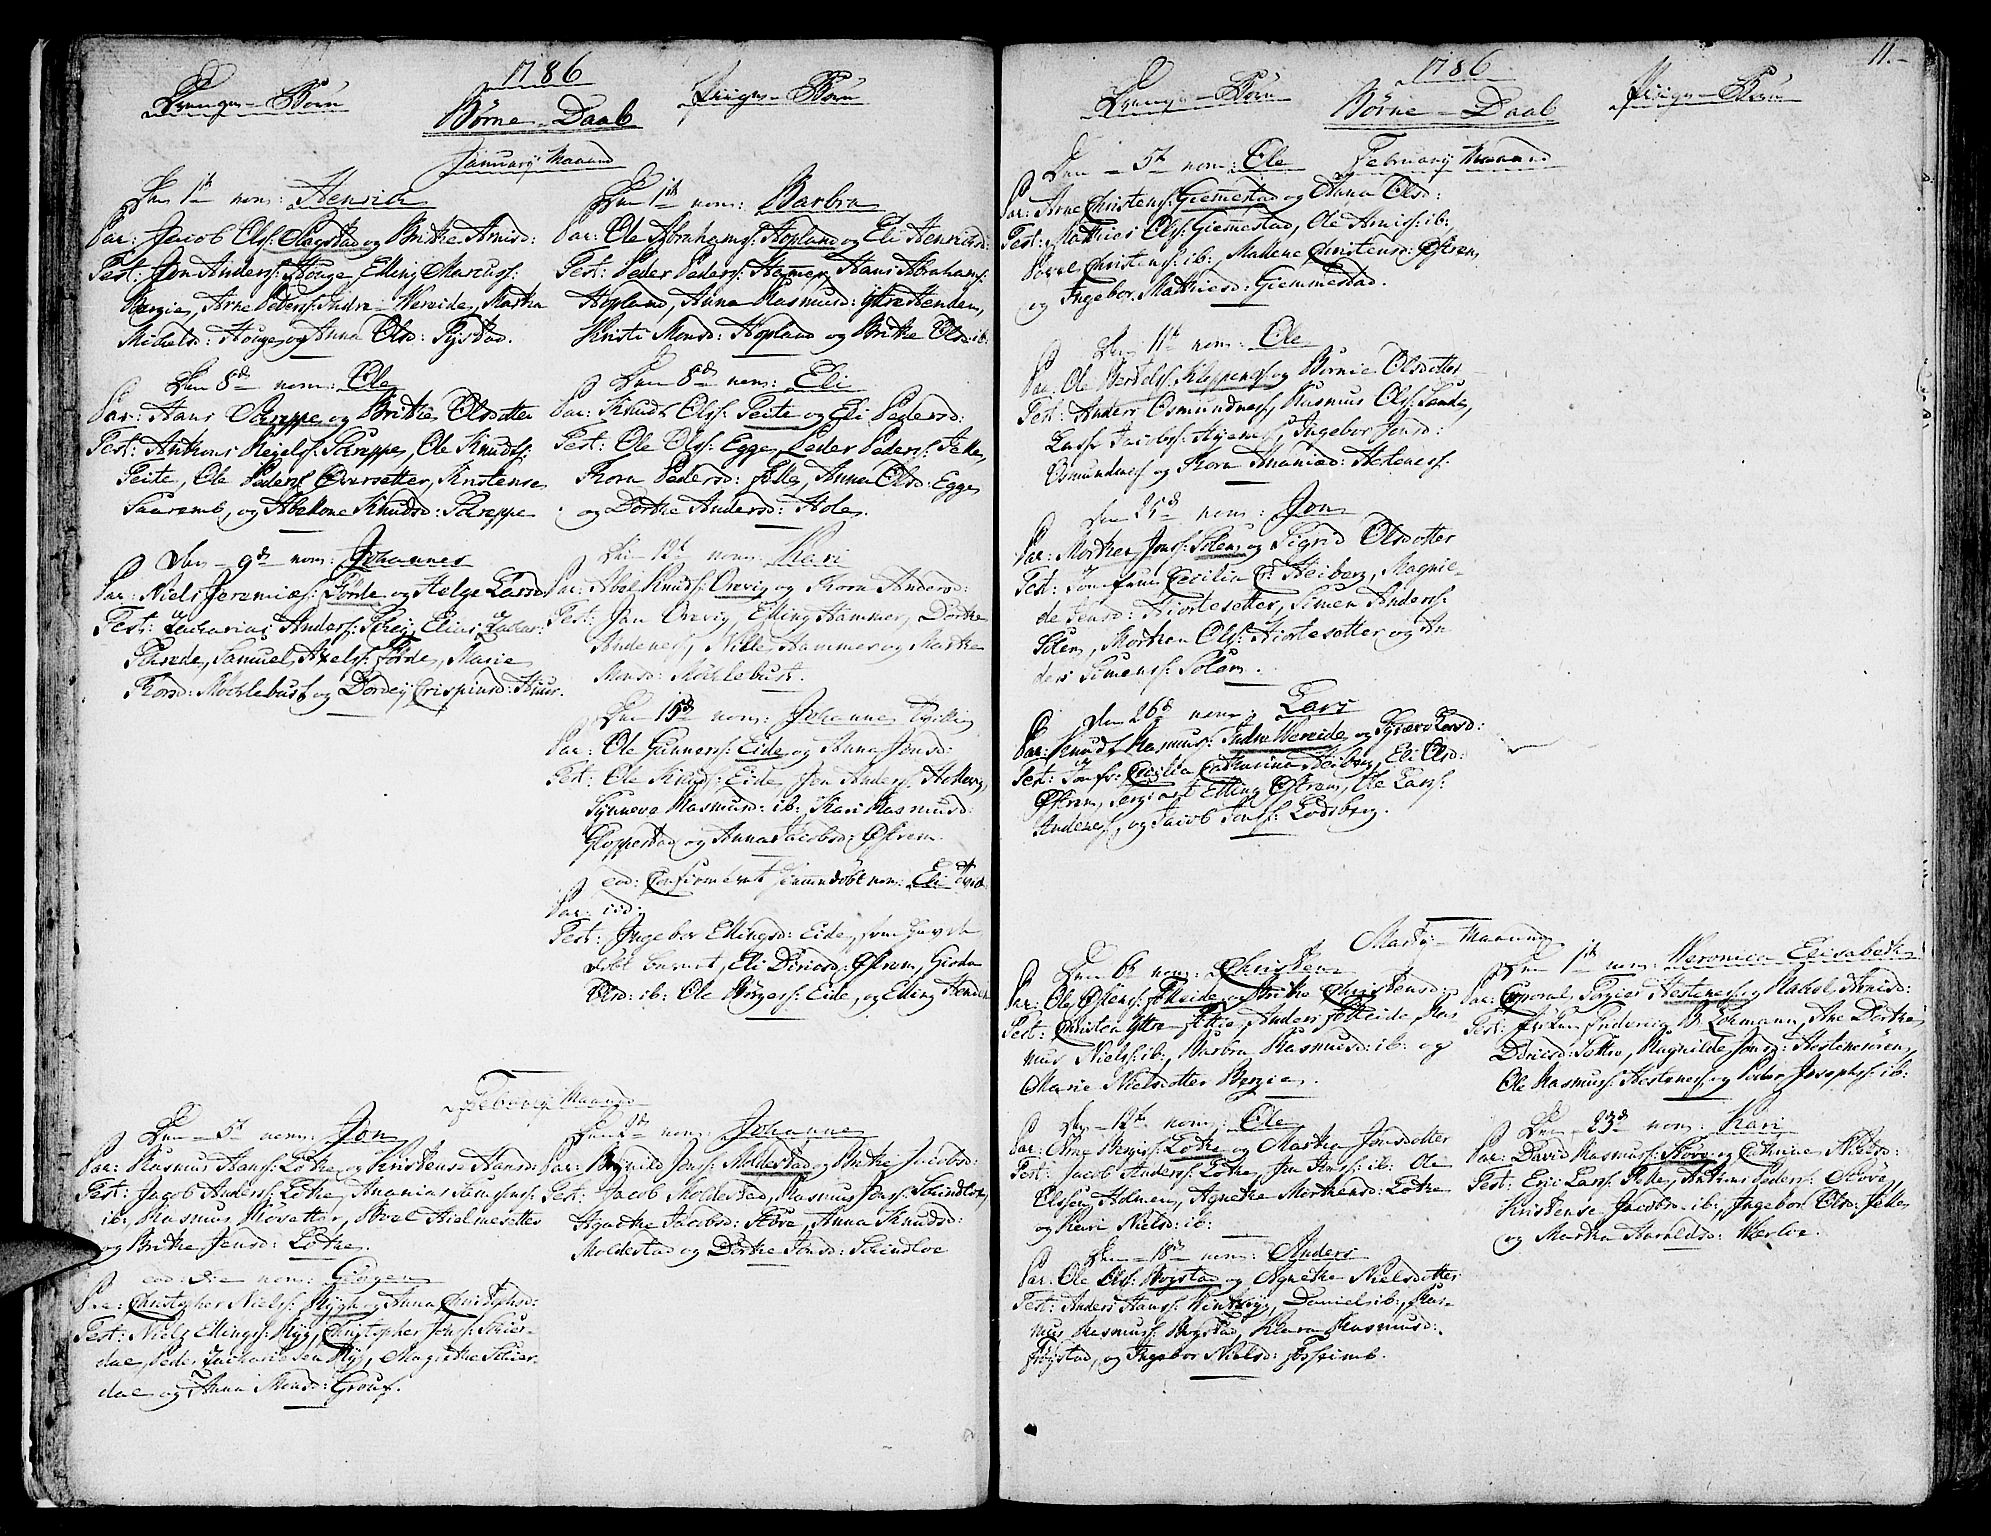 1786
Drenge-Børn
Piiges-Børn
Børne-Daab
Januarij Maaned
Den 1te nom: Henrich
Par: Jacob Ols: Sagstad og Brithe Arnisd:
Test: Jon Anders: Houge, Elling Marcuss:
Bergie, Arne Peders: Indre-Hereide, Martha
Michelsd: Houge og Anna Olsd: Rystad.
Den 8de nom: Ole
Par: Hans Schreppe og Brithe Olsdotter
Test: Anthoni Reiels: Schreppe, Ole Knuds:
Peite, Ole Peders: Øvresetter, Kristense
Aaremb, og Abelone Knudsd: Schreppe
Den 9de nom: Johannes
Par: Niels Jeremiæs: Førde og Helge Larsd
Test: Zacharias Anders: Schrej, Elias Zachar:
Schrede, Samuel Axels: Førde, Marie
Thorsd: Mochlebust og Dordej Crispinsd: Skuur.
Den 1te nom: Barbra
Par: Ole Abrahams: Hopland og Eli Henricsd:
Test: Peder Peders: Hammer, Hans Abrahams:
Hopland, Anna Rasmusd: Ytre Henden,
Kristi Monsd: Hopland og Brithe Olsd ib:
Den 8de nom: Eli
Par: Knud Ols: Peite og Eli Pedersd:
Test: Ole Ols: Egge, Peder Peders: Felle,
Thora Pedersd: Felle, Anna Olsd: Egge
og Dorthe Andersd: Hole.
Den 12te nom: Kari
Par: Abel Knuds: Orevig og Thora Andersd:
Test: Jan Orevig, Elling Hammer, Dorthe
Andenes, Nille Hammer og Marthe
Monsd: Mochlebust.
Den 15de nom: Johanne Tvilling
Par: Ole Gunners: Eide og Anna Jonsd:
Test: Ole Knuds: Eide, Jon Anders: Hollevig,
Synneva Rasmusd: ib: Kari Rasmusd:
Gloppestad og Anna Jacobsd: Østrem.
eod: Confirmeret hiemmedøbt nom: Eli
Par: iid:
Test: Ingebor Ellingsd: Eide, som havde
døbt barnet, Eli Diricsd: Østrem, Gjorda
Olsd: ib: Ole Børges: Eide, og Elling Henden
Februarij Maaned
Den 5te nom: Jon
Par: Rasmus Hans: Lothe og Kristense Hansd:
Test: Jacob Anders: Lothe, Ananias
ib: Rasmus Røsetter, Abel Hielmesetter
og Brithe Jensd: Lothe.
eod: Die nom:
Par: Christopher Niels: Rygh og Anna Christophsd:
Test: Niels Ellings: Ryg, Christopher Jons: Skier-
dae, Peder Zacharie sen Ryg, Magrethe Skier-
dae og Anna Monsd: Grouf.
Den 2de nom: Johanne
Par: Bøynild Jons: Moldestad og Brithe Jacobsd:
Test: Jacob Moldestad, Rasmus Jons: Schindloe,
Agnethe Jacobsd: Støve, Anna Knudsd:
Moldestad og Dorthe Jonsd: Schindloe
11.
1786
Drenge-Børn
Piiges-Børn
Børne-Daab
Februarij Maaned
Den 5te nom: Ole
Par: Arne Christens: Giemmestad og Anna Olsd:
Test: Mathies Ols: Giemmestad, Ole Arnis: ib:,
Povel Christens: ib:, Mallene Christensd: Østrem,
og Ingebor Mathiesd: Giemmestad.
Den 11te nom: Ole
Par: Ole Bertels: Kleppenes og Børnie Olsdotter
Test: Anders Osmundnes, Rasmus Ols: Sande,
Lars Jacobs: Hjemes, Ingebor Jonsd:
Osmundnes og Thora Ananiæd: Hestenes:
Den 25de nom: Jon
Par: Morthen Jons: Solem og Sigrid Olsdotter
Test: Jomfrue Cecilia C: Heiberg, Magnil-
de Jensd: Hiortesetter, Simen Anders:
Solem, Morthen Ols: Hiortesetter og An
ders Simens: Solem.
Den 26de nom: Lars
Par: Knud Rasmus: Indre Hereide og Synneve Larsd:
Test: Jomfr: Cecilia Catharina Heiberg, Eli Olsd:
Østrem, Sergiant Elling Østrem, Ole Lars:
Andenes, og Jacob Jons: Lodsberg.
Martij Maaned
Den 6te nom: Christen
Par: Ole Østens: Følleide og Brithe Christensd:
Test: Christen Ytre Fitje, Anders Følleide, Ras
mus Niels: ib:, Barbra Rasmusd: ib: og
Marie Nielsdotter Bergie.
Den 12te nom: Ole
Par: Arne Børgis: Lothe og Martha Jonsdotter
Test: Jacob Anders: Lothe, Jon Jons: ib: Ole
Elsen Holmen, Agnethe Morthensd: Lothe
og Kari Nielsd: ib:
Den 18de nom: Anders
Par: Ole Ols: Rygstad og Agnethe Nielsdotter
Test: Anders Hans: Vinberg, Daniel ib:, Ras-
mus Rasmus: Rygstad, Klara Rasmusd:
Frystad, og Ingebor Nielsd: Fossimb.
Den 1te nom: Veronica Elisabeth
Par: Corporal Torgier Hestenes og Rakel Arnisd:
Test: Frøken Friderica B: Lohmann, Ane Dorthe
Diricsd: Sothe, Magnilde Jonsd: Hestenesøren,
Ole Rasmus: Hestenes og Peder Josephs: ib:
Den 23de nom: Kari
Par: David Rasmus: Støve og Cathrine Nielsd:
Test: Eric Lars: Felle, Anthoni Peders: Støve,
Kristense Jacobsd: ib:, Ingebor Olsd: Felle
og Martha Haraldsd: Hærloe.